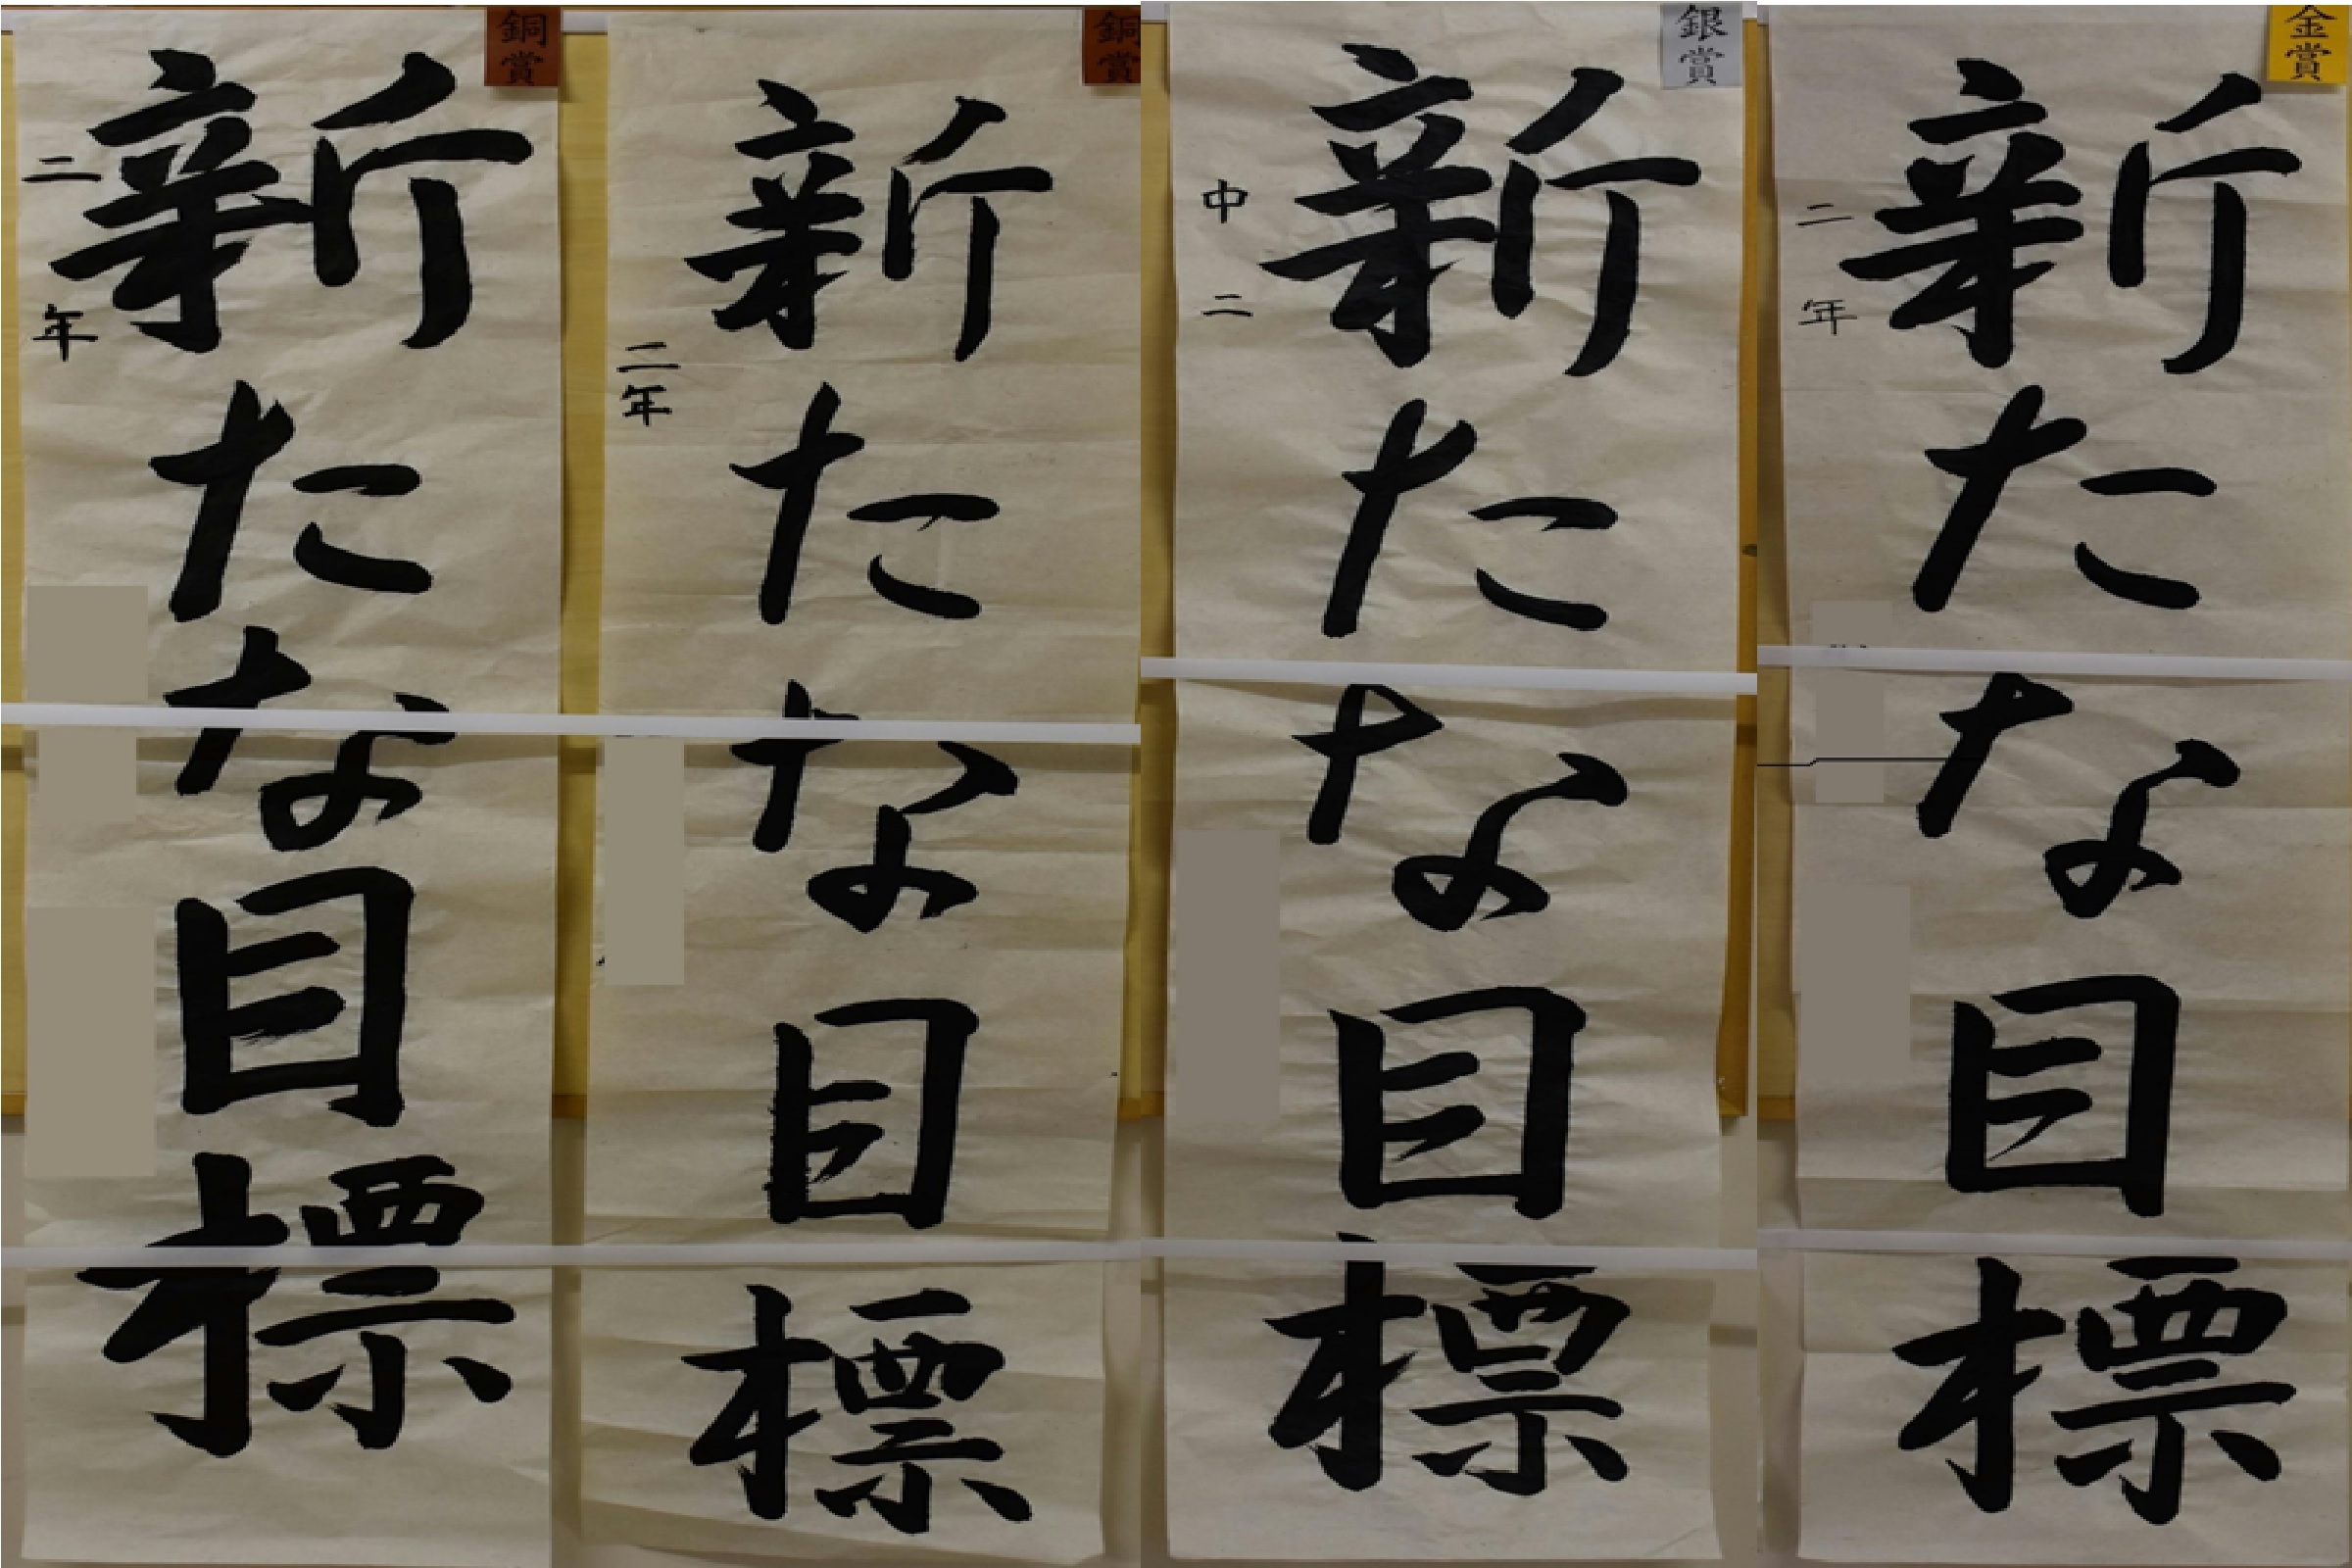 金賞
新たな目標
二年
銀賞
新たな目標
中二
銅賞
新たな目標
二年
銅賞
新たな目標
二年